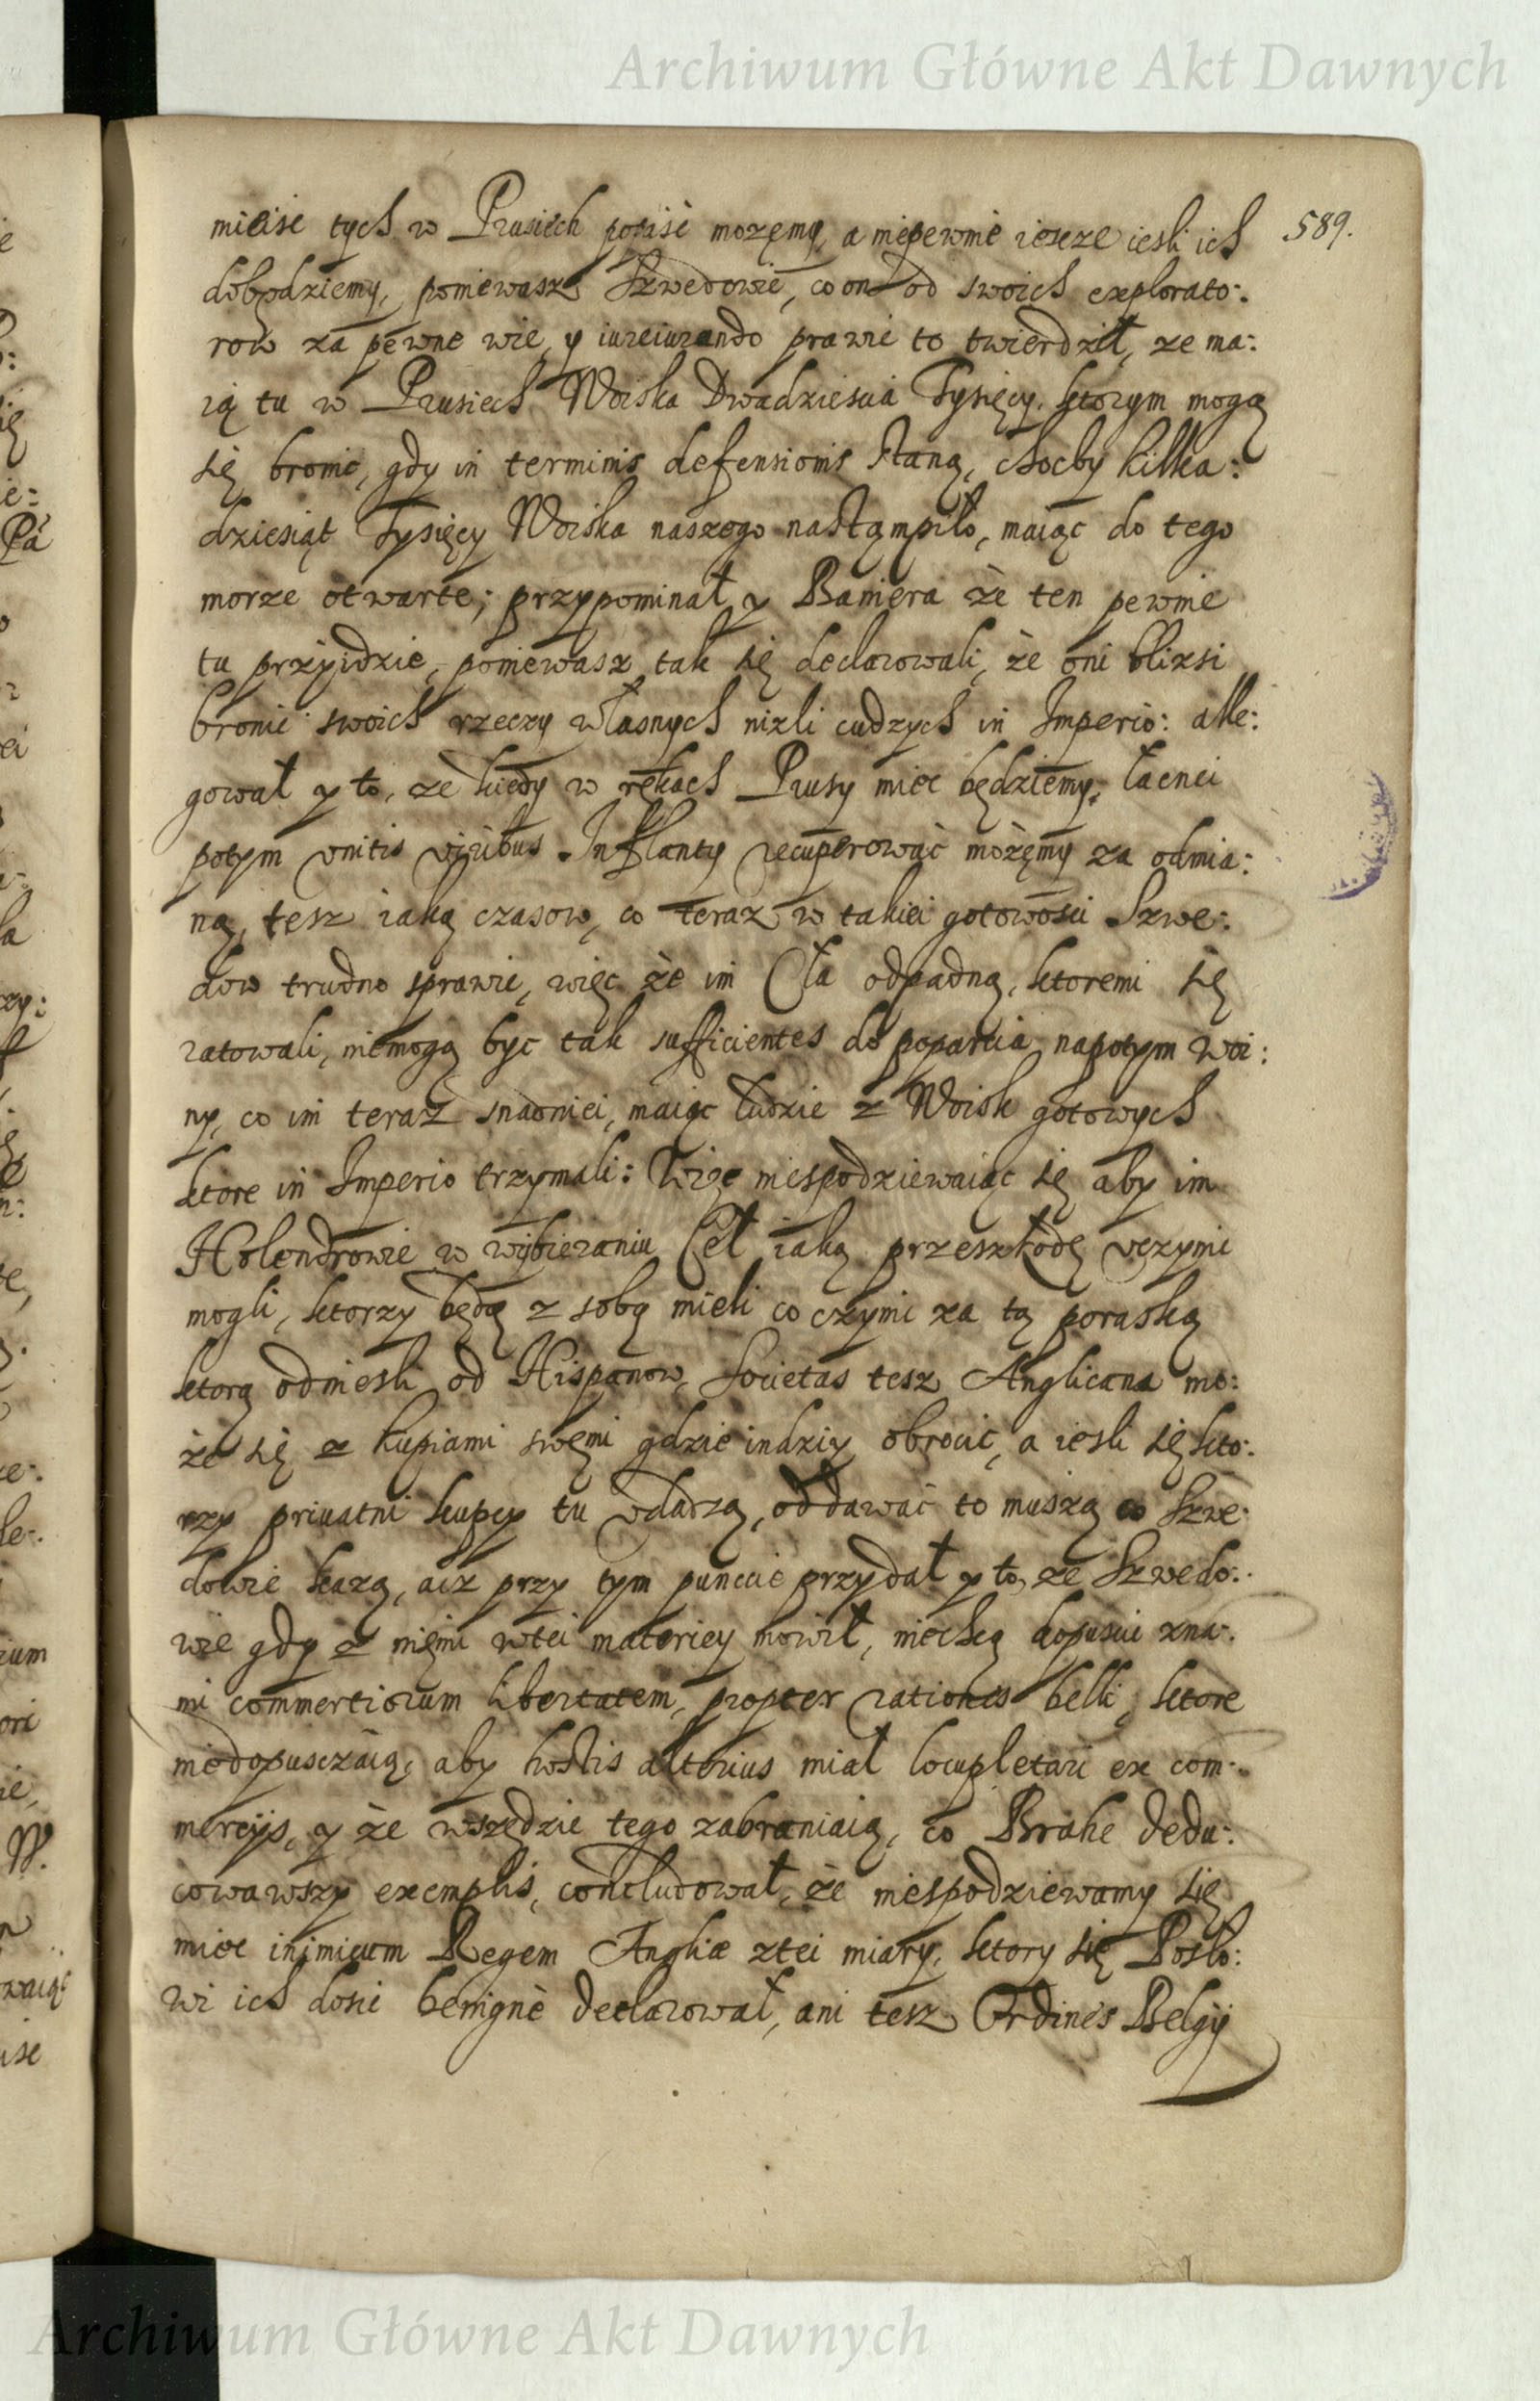 Archiwum Główne Akt Dawnych
589.
mieisc tych w Prusiech posiść możęmy, a niepewnie iescze iesli ich
dobędziemy, poniewasz Szwedowie, co on od swoich explorato:
row za pewne wie, y iureiurando prawie to twierdził, ze ma:
ią tu w Prusiech Woiska Dwadziescia Tysięcy, ktorym mogą
się bronic, gdy in terminis defensionis staną, chocby kilka:
dziesiąt Tysięcy Woiska naszego nastąmpiło, maiąc do tego
morze otwarte; przypominał y Baniera że ten pewnie
tu przyidzie, poniewasz tak się declarowali, że oni blizsi
bronic swoich rzeczy własnych nizli cudzych in Imperio: alle:
gował y to, ze kiedy w rękach Prusy miec będziemy, łacnei
potym vnitis viribus Inflanty recuperować możęmy za odmia:
ną, tesz iaką czasow, co teraz w takiei gotowosci Szwe:
dow trudno sprawic, więc że im Cła odpadną, ktoremi się
ratowali, niemogą byc tak sufficientes do poparcia napotym woi:
ny, co im teraz snadniei, maiąc ludzie z Woisk gotowych
ktore in Imperio trzymali: Więc niespodziewaiąc się aby im
Holendrowie w wybieraniu Ceł iaką przeszkodę vczynic
mogli, ktorzy będą z sobą mieli co czynic za tą poraską
ktorą odniesli od Hispanow, Societas tesz Anglicana mo:
że się z kupiami swęmi gdzie indziy obrocic, a iesli się kto:
rzy priuatni kupcy tu vdadzą, oddawać to muszą co Szwe:
dowie każą, aiż przy tym puncie przydał y to, ze Szwedo:
wie gdy z nięmi wtei materiey mowił, niechcą dopuscic zna:
mi commertiorum libertatem, propter rationes belli, ktore
niedopusczaią, aby hostis alterius miał locupletari ex com:
mercijs, y że wszędzie tego zabraniaią, co Brahe dedu:
cowawszy exemplis, concludował, że niespodziewamy się
miec inimicum Regem Angliæ ztei miary, ktory się Posło:
wi ich dosic benignè declarował, ani tesz Ordines Belgij
Archiwum Główne Akt Dawnych